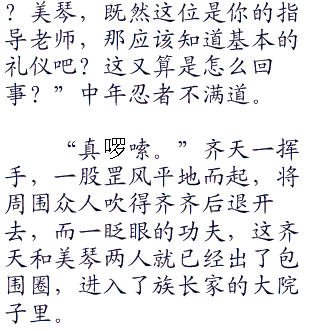 ？美琴，既然这位是你的指
导老师，那应该知道基本的
礼仪吧？这又算是怎么回
事？”中年忍者不满道。
“真啰嗦。”齐天一挥
手，一股罡风平地而起，将
周围众人吹得齐齐后退开
去，而一眨眼的功夫，这齐
天和美琴两人就已经出了包
围圈，进入了族长家的大院
子里。